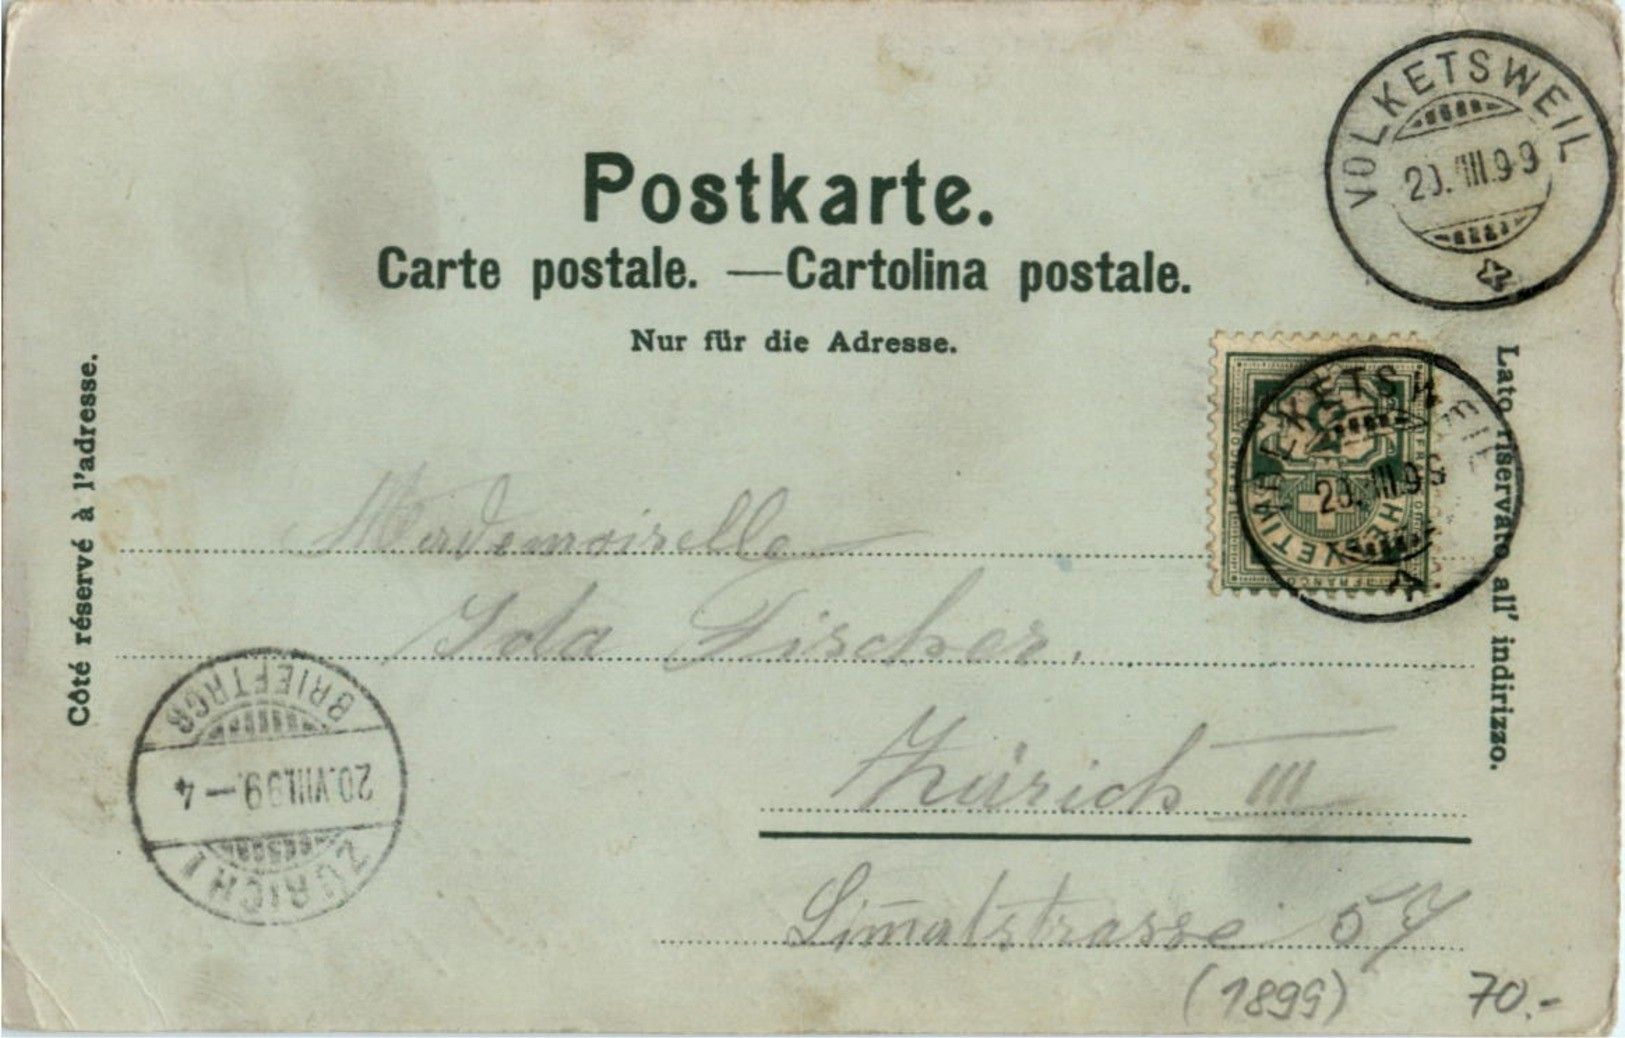 VOLKETSWEIL
20.VIII.99
Postkarte.
Carte postale. — Cartolina postale.
Nur für die Adresse.
Côté réservé à l'adresse.
Lato riservato all' indirizzo.
HELVETIA
FRANCO
20.VIII.99
Mademoiselle
Ida Fischer.
Zürich III
Lim̄atstrasse 57
BRIEFTRGR
20.VIII.99.–4
ZÜRICH 1
(1899)
70.-